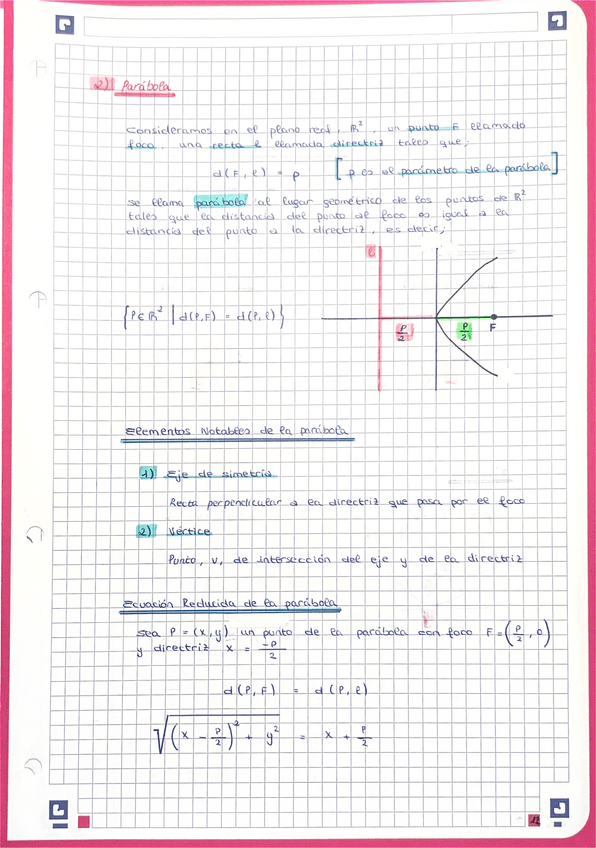 2) Parábola
Consideramos en el plano real, R², un punto F llamado
foco, una recta l llamada directriz tales que;
d(F, l) = p [p es el parámetro de la parábola]
Se llama parábola al lugar geométrico de los puntos de R²
tales que la distancia del punto al foco es igual a la
distancia del punto a la directriz, es decir;
l
{P ∈ R² | d(P,F) = d(P,l)}
p/2 p/2 F
Elementos Notables de la parábola
1) Eje de simetría
Recta perpendicular a la directriz que pasa por el foco
2) Vértice
Punto, V, de intersección del eje y de la directriz
Ecuación Reducida de la parábola
Sea P = (x,y) un punto de la parábola con foco F = (p/2, 0)
y directriz x = -p/2
d(P,F) = d(P,l)
√((x - p/2)² + y²) = x + p/2
12